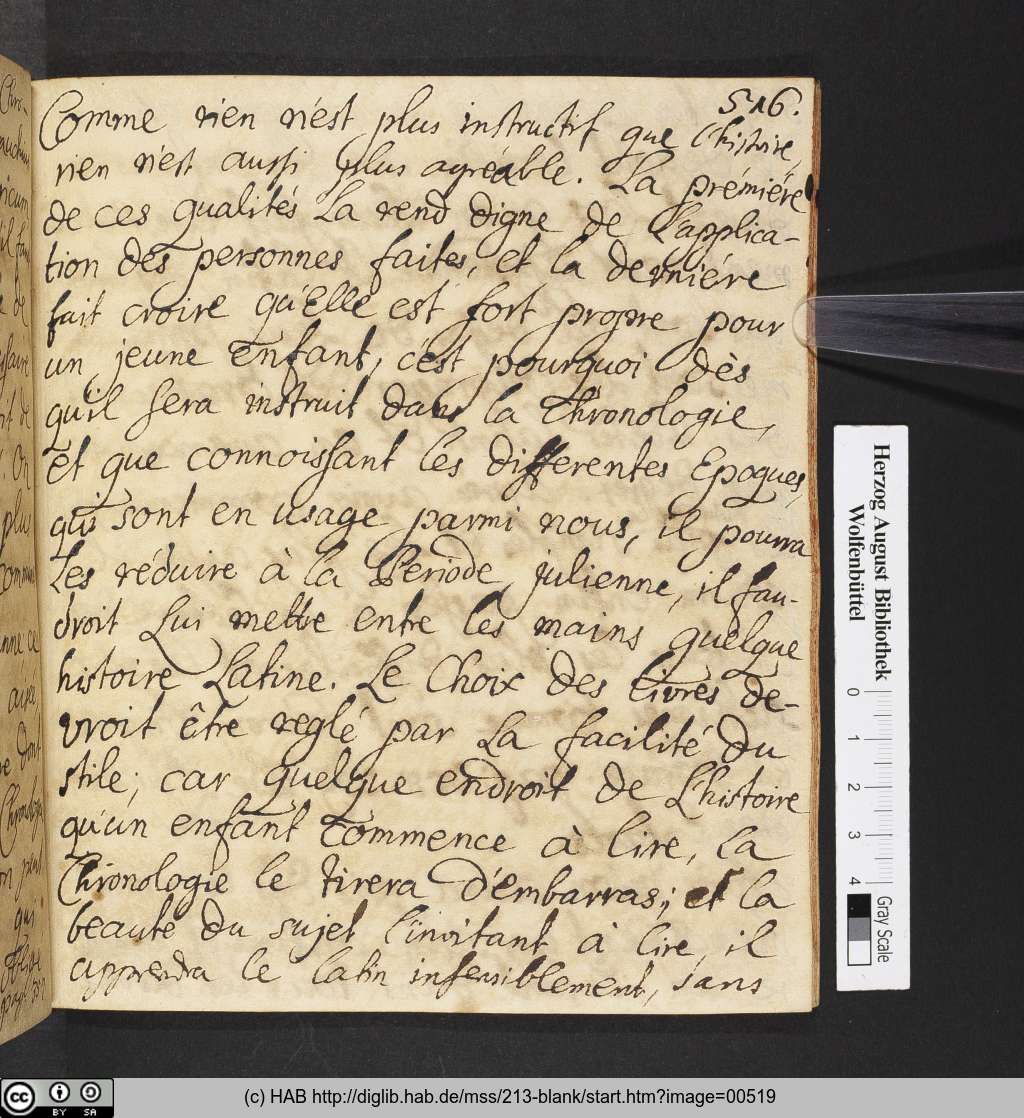 516.
Comme rien n'est plus instructif que l'histoire,
rien n'est aussi plus agréable. La prémiére
de ces qualités la rend digne de l'applica-
tion des personnes faites, et la derniére
fait croire qu'Elle est fort propre pour
un jeune enfant, c'est pourquoi dès
qu'il sera instruit dans la Chronologie,
et que connoissant les differentes Epoques,
qui sont en usage parmi nous, il pourra
les réduire à la Periode julienne, il fau-
droit lui mettre entre les mains quelque
histoire Latine. Le Choix des livres de-
vroit être reglé par la facilité du
stile; car quelque endroit de l'histoire
qu'un enfant commence à lire, la
Chronologie le tirera d'embarras; et la
beauté du sujet l'invitant à lire, il
apprendra le latin insensiblement, sans
Herzog August Bibliothek
Wolfenbüttel
0 1 2 3 4
Gray Scale
(c) HAB http://diglib.hab.de/mss/213-blank/start.htm?image=00519
cc BY SA